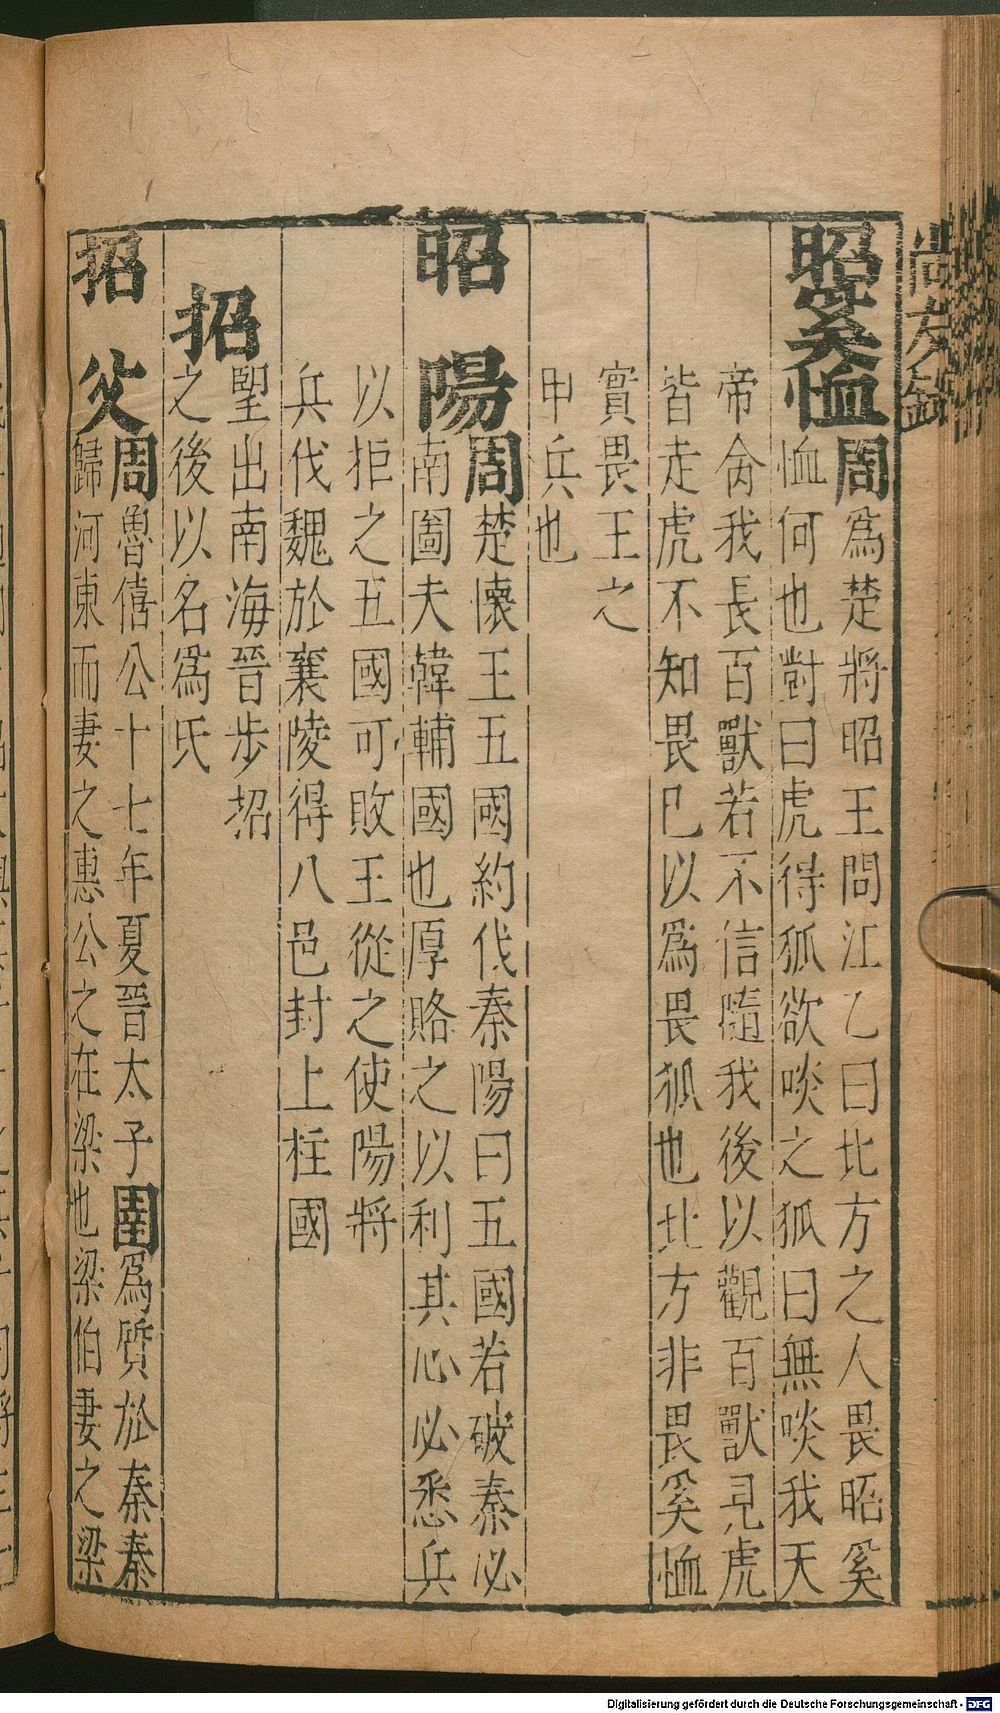 昭奚恤
周爲楚將昭王問江乙曰北方之人畏昭奚
恤何也對曰虎得狐欲啖之狐曰無啖我天
帝命我長百獸若不信隨我後以觀百獸見虎
皆走虎不知畏巳以爲畏狐也北方非畏奚恤
實畏王之
甲兵也
昭陽
周楚懷王五國約伐秦陽曰五國若破秦必
南圖夫韓輔國也厚賂之以利其心必悉兵
以拒之五國可敗王從之使陽將
兵伐魏於襄陵得八邑封上柱國
招
望出南海晉步招
之後以名爲氏
招父
周魯僖公十七年夏晉太子圉爲質於秦秦
歸河東而妻之惠公之在梁也梁伯妻之梁
Digitalisierung gefördert durch die Deutsche Forschungsgemeinschaft - DFG